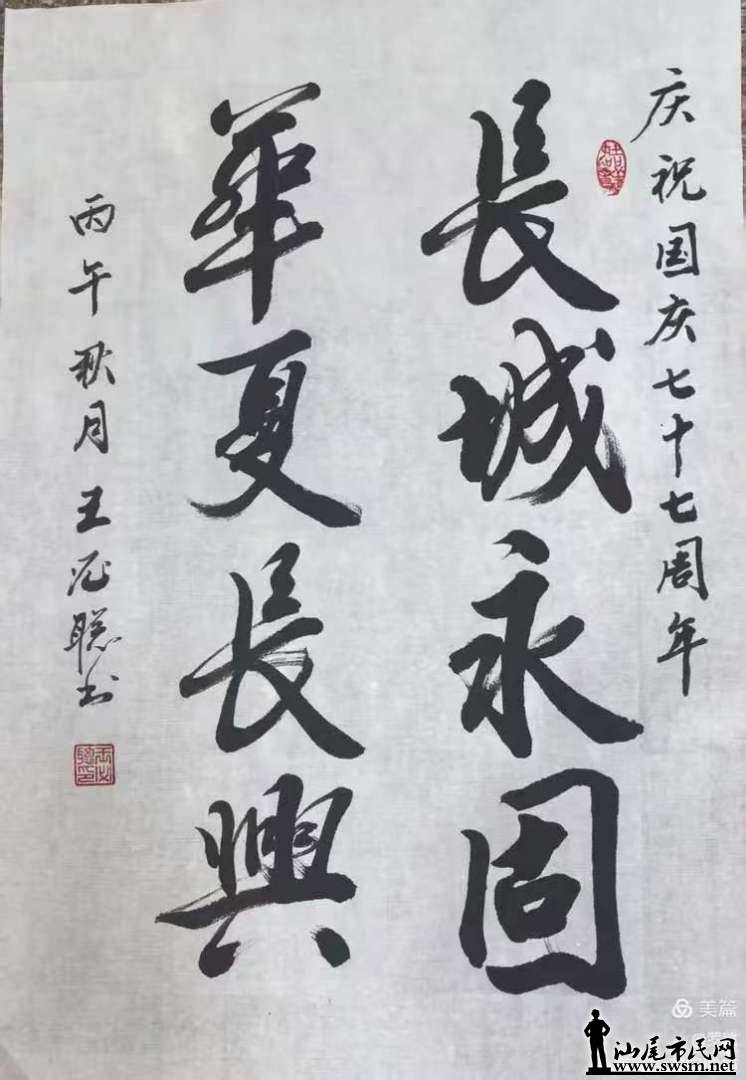 庆祝国庆七十七周年
長城永固
華夏長興
丙午秋月王泥聪书
美篇
汕尾市民网
www.swsm.net